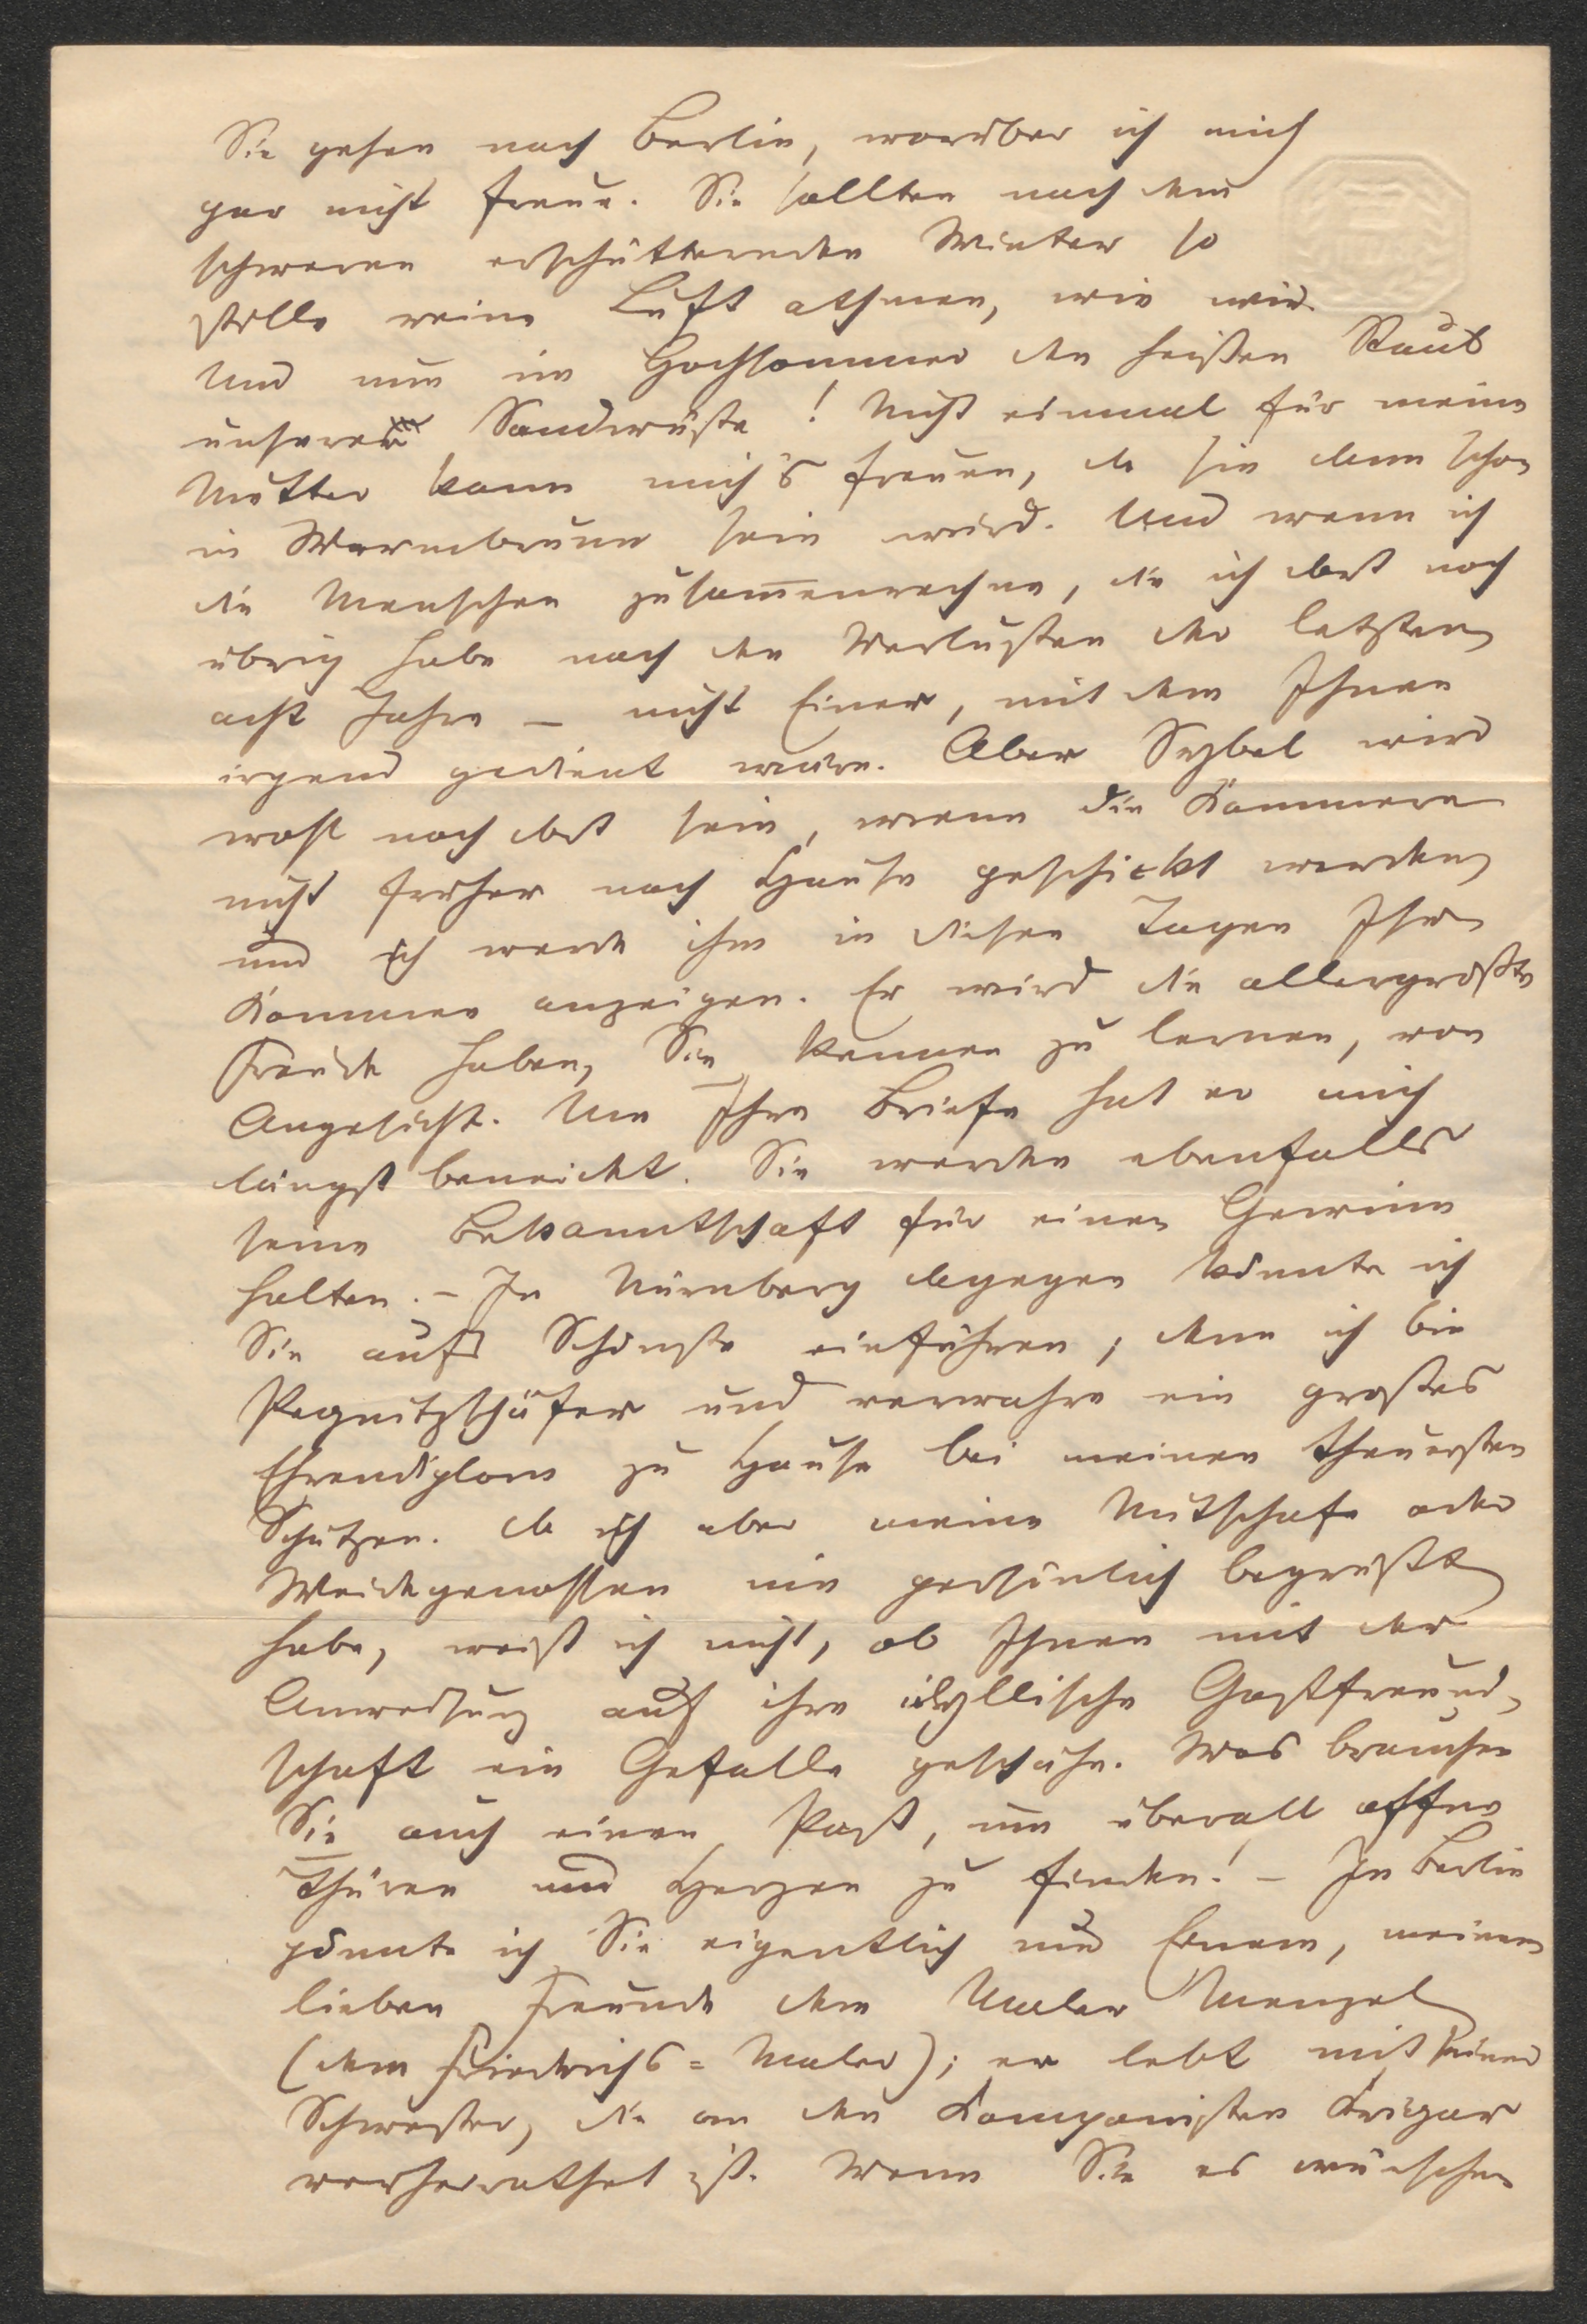 Sie gehen nach Berlin, worüber ich mich
gar nicht freue. Sie sollten nach dem
schweren erschütternden Winter so
stille reine Luft athmen, wie wir.
Und nun im Hochsommer den heißen Staub
unserer Sandwüste! Nicht einmal für meine
Mutter kann mich's freuen, da sie dann schon
in Warmbrunn sein wird. Und wenn ich
die Menschen zusammenrechne, die ich dort noch
übrig habe nach den Verlusten der letzten
acht Jahre – nicht Einer, mit dem Ihnen
irgend gedient wäre. Aber Sybel wird
wohl noch dort sein, wenn die Kammern
nicht früher nach Hause geschickt werden
und ich werde ihm in diesen Tagen Ihr
Kommen anzeigen. Er wird die allergrößte
Freude haben, Sie kennen zu lernen, von
Angesicht. Um Ihre Briefe hat er mich
längst beneidet. Sie werden ebenfalls
seine Bekanntschaft für einen Gewinn
halten. – In Nürnberg dagegen könnte ich
Sie aufs Schönste einführen, denn ich bin
Pegnitzschäfer und verwahre ein großes
Ehrendiplom zu Hause bei meinen theuersten
Schätzen. Da ich aber meine Mitschafe oder
Weidegenossen nie persönlich begrüßt
habe, weiß ich nicht, ob Ihnen mit der
Anweisung auf ihre idyllische Gastfreund-
schaft ein Gefalle geschähe. Was brauchen
Sie auch einen Paß, um überall offne
Thüren und Herzen zu finden! – In Berlin
gönnte ich Sie eigentlich nur Einem, meinem
lieben Freunde dem Maler Menzel
(dem Friedrichs-Maler); er lebt mit seiner
Schwester, die an den Komponisten Krigar
verheirathet ist. Wenn Sie es wünschen